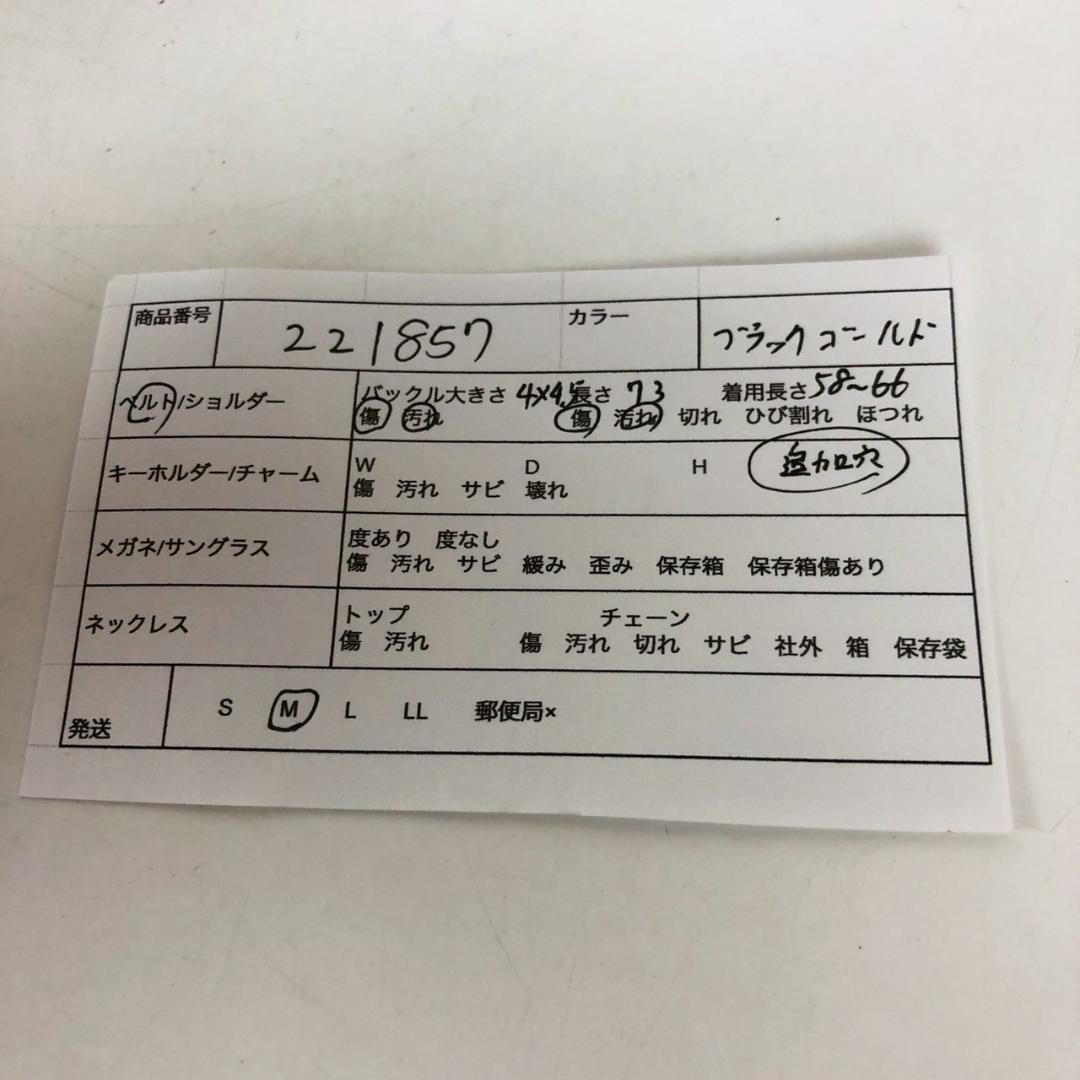 商品番号 221857 カラー ブラックゴールド
ベルト/ショルダー バックル大きさ 4×4.5 長さ 73 着用長さ 58~66
傷 汚れ 傷 汚れ 切れ ひび割れ ほつれ
キーホルダー/チャーム W D H 追加穴
傷 汚れ サビ 壊れ
メガネ/サングラス 度あり 度なし
傷 汚れ サビ 緩み 歪み 保存箱 保存箱傷あり
ネックレス トップ チェーン
傷 汚れ 傷 汚れ 切れ サビ 社外 箱 保存袋
発送 S M L LL 郵便局×